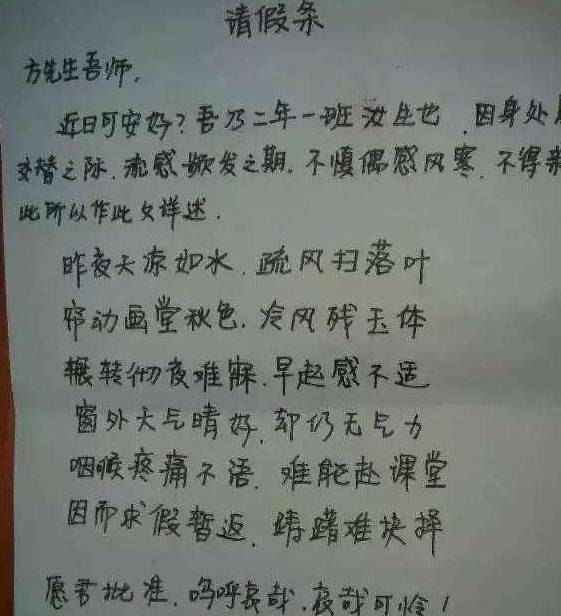 请假条
方先生吾师,
近日可安好?吾乃二年一班汝生也,因身处
交替之际,流感频发之期,不慎偶感风寒,不得
此所以作此文详述.
昨夜天凉如水,疏风扫落叶
帘动画堂秋色,冷风残玉体
辗转彻夜难寐,早起感不适
窗外天气晴好,却仍无气力
咽喉疼痛不语,难能赴课堂
因而求假暂返,踌躇难抉择
愿君批准,呜呼哀哉,哀哉可怜!